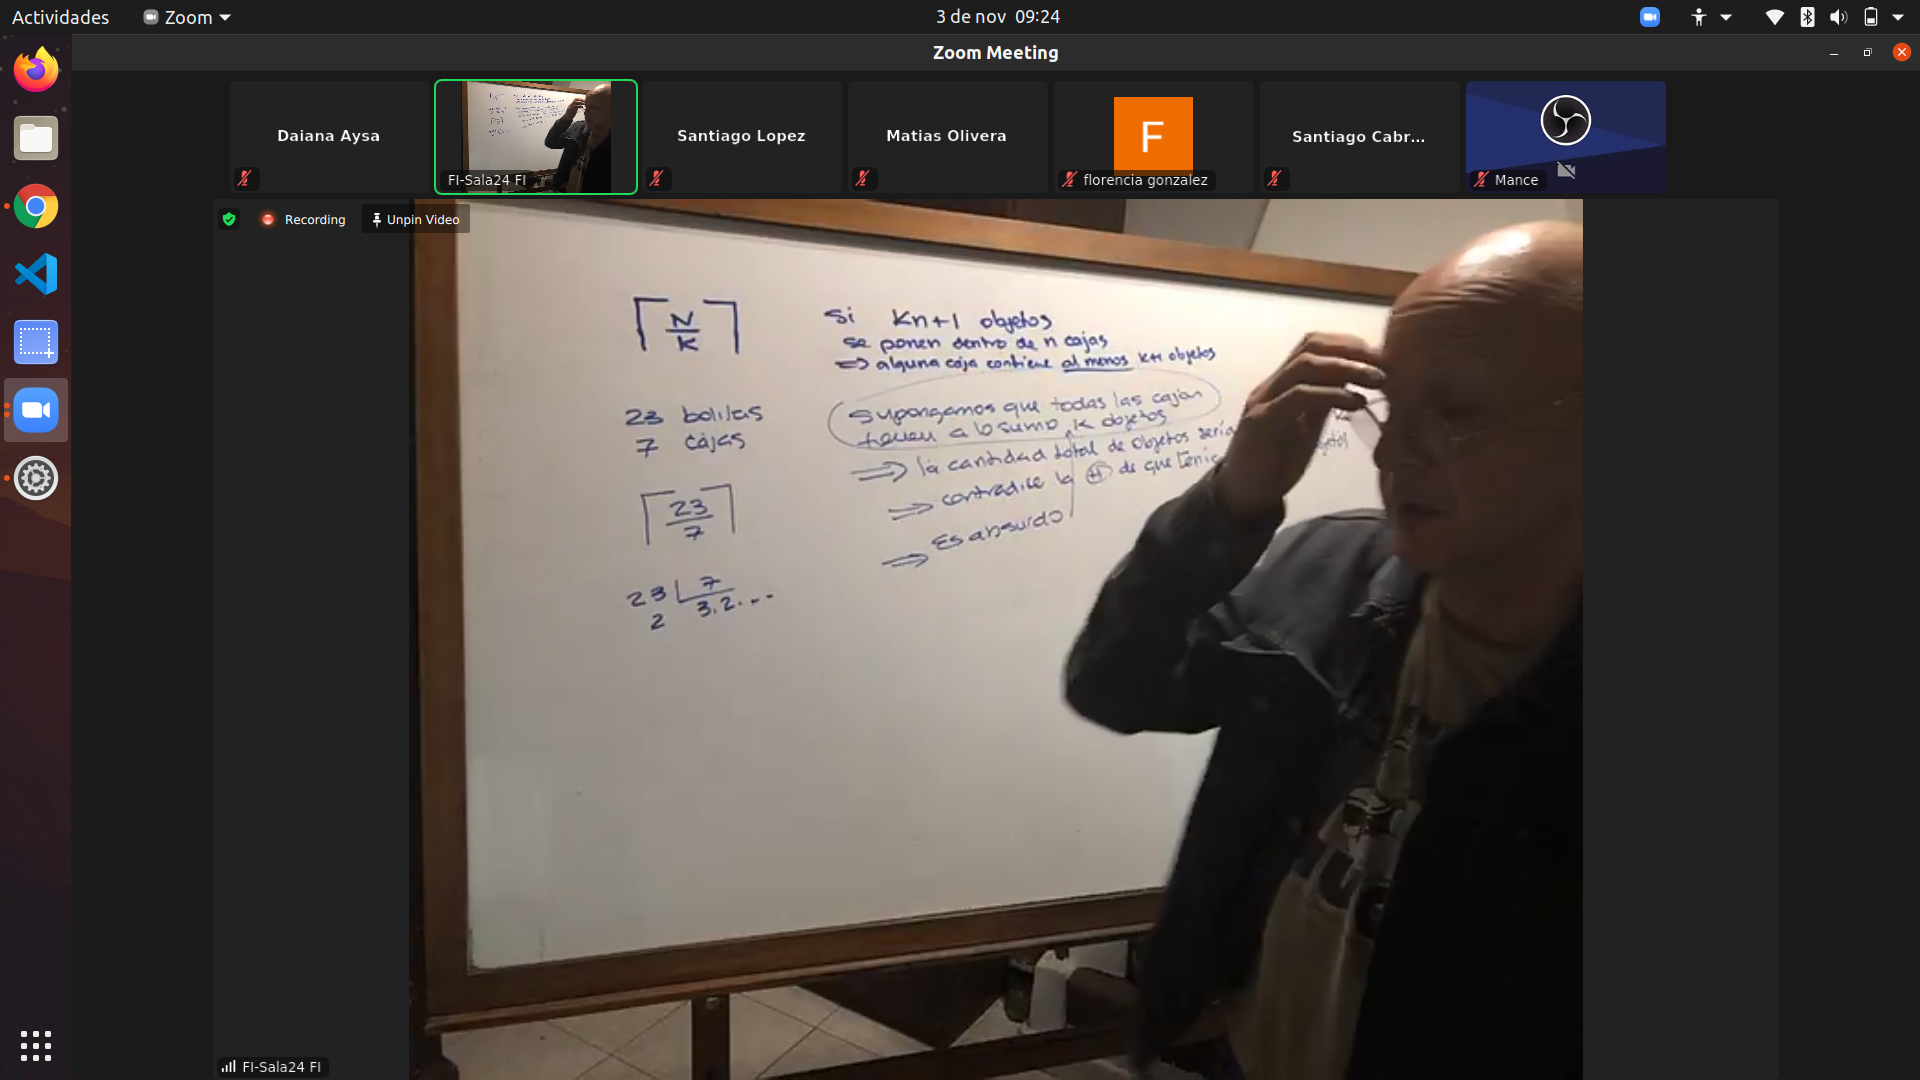 Actividades
Zoom
3 de nov 09:24
Zoom Meeting
Daiana Aysa
FI-Sala24 FI
Santiago Lopez
Matias Olivera
F
florencia gonzalez
Santiago Cabr...
Mance
Recording
Unpin Video
⌈N/K⌉
23 bolilas
7 cajas
⌈23/7⌉
23 7
2 3.2...
Si Kn+1 objetos
se ponen dentro de n cajas
=> alguna caja contiene al menos k+1 objetos
Supongamos que todas las cajas
tienen a lo sumo k objetos
=> la cantidad total de objetos sería
=> contradice la (H) de que
=> Es absurdo
FI-Sala24 FI